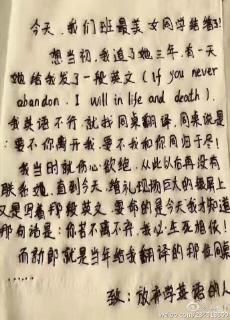 今天，我们班最美女同学结婚了！
想当初，我追了她三年，有一天
她给我发了一段英文(If you never
abandon, I will in life and death).
我英语不行，就找同桌翻译，同桌说是
：要不你离开我，要不我和你同归于尽！
我当时就伤心欲绝，从此以后再没有
联系她，直到今天，婚礼现场巨大的横屏上
又是写着那段英文，要命的是今天我才知道
那句话是：你若不离不弃，我必生死相依！
而新郎就是当年给我翻译的那位同桌
致：放弃学英语的人